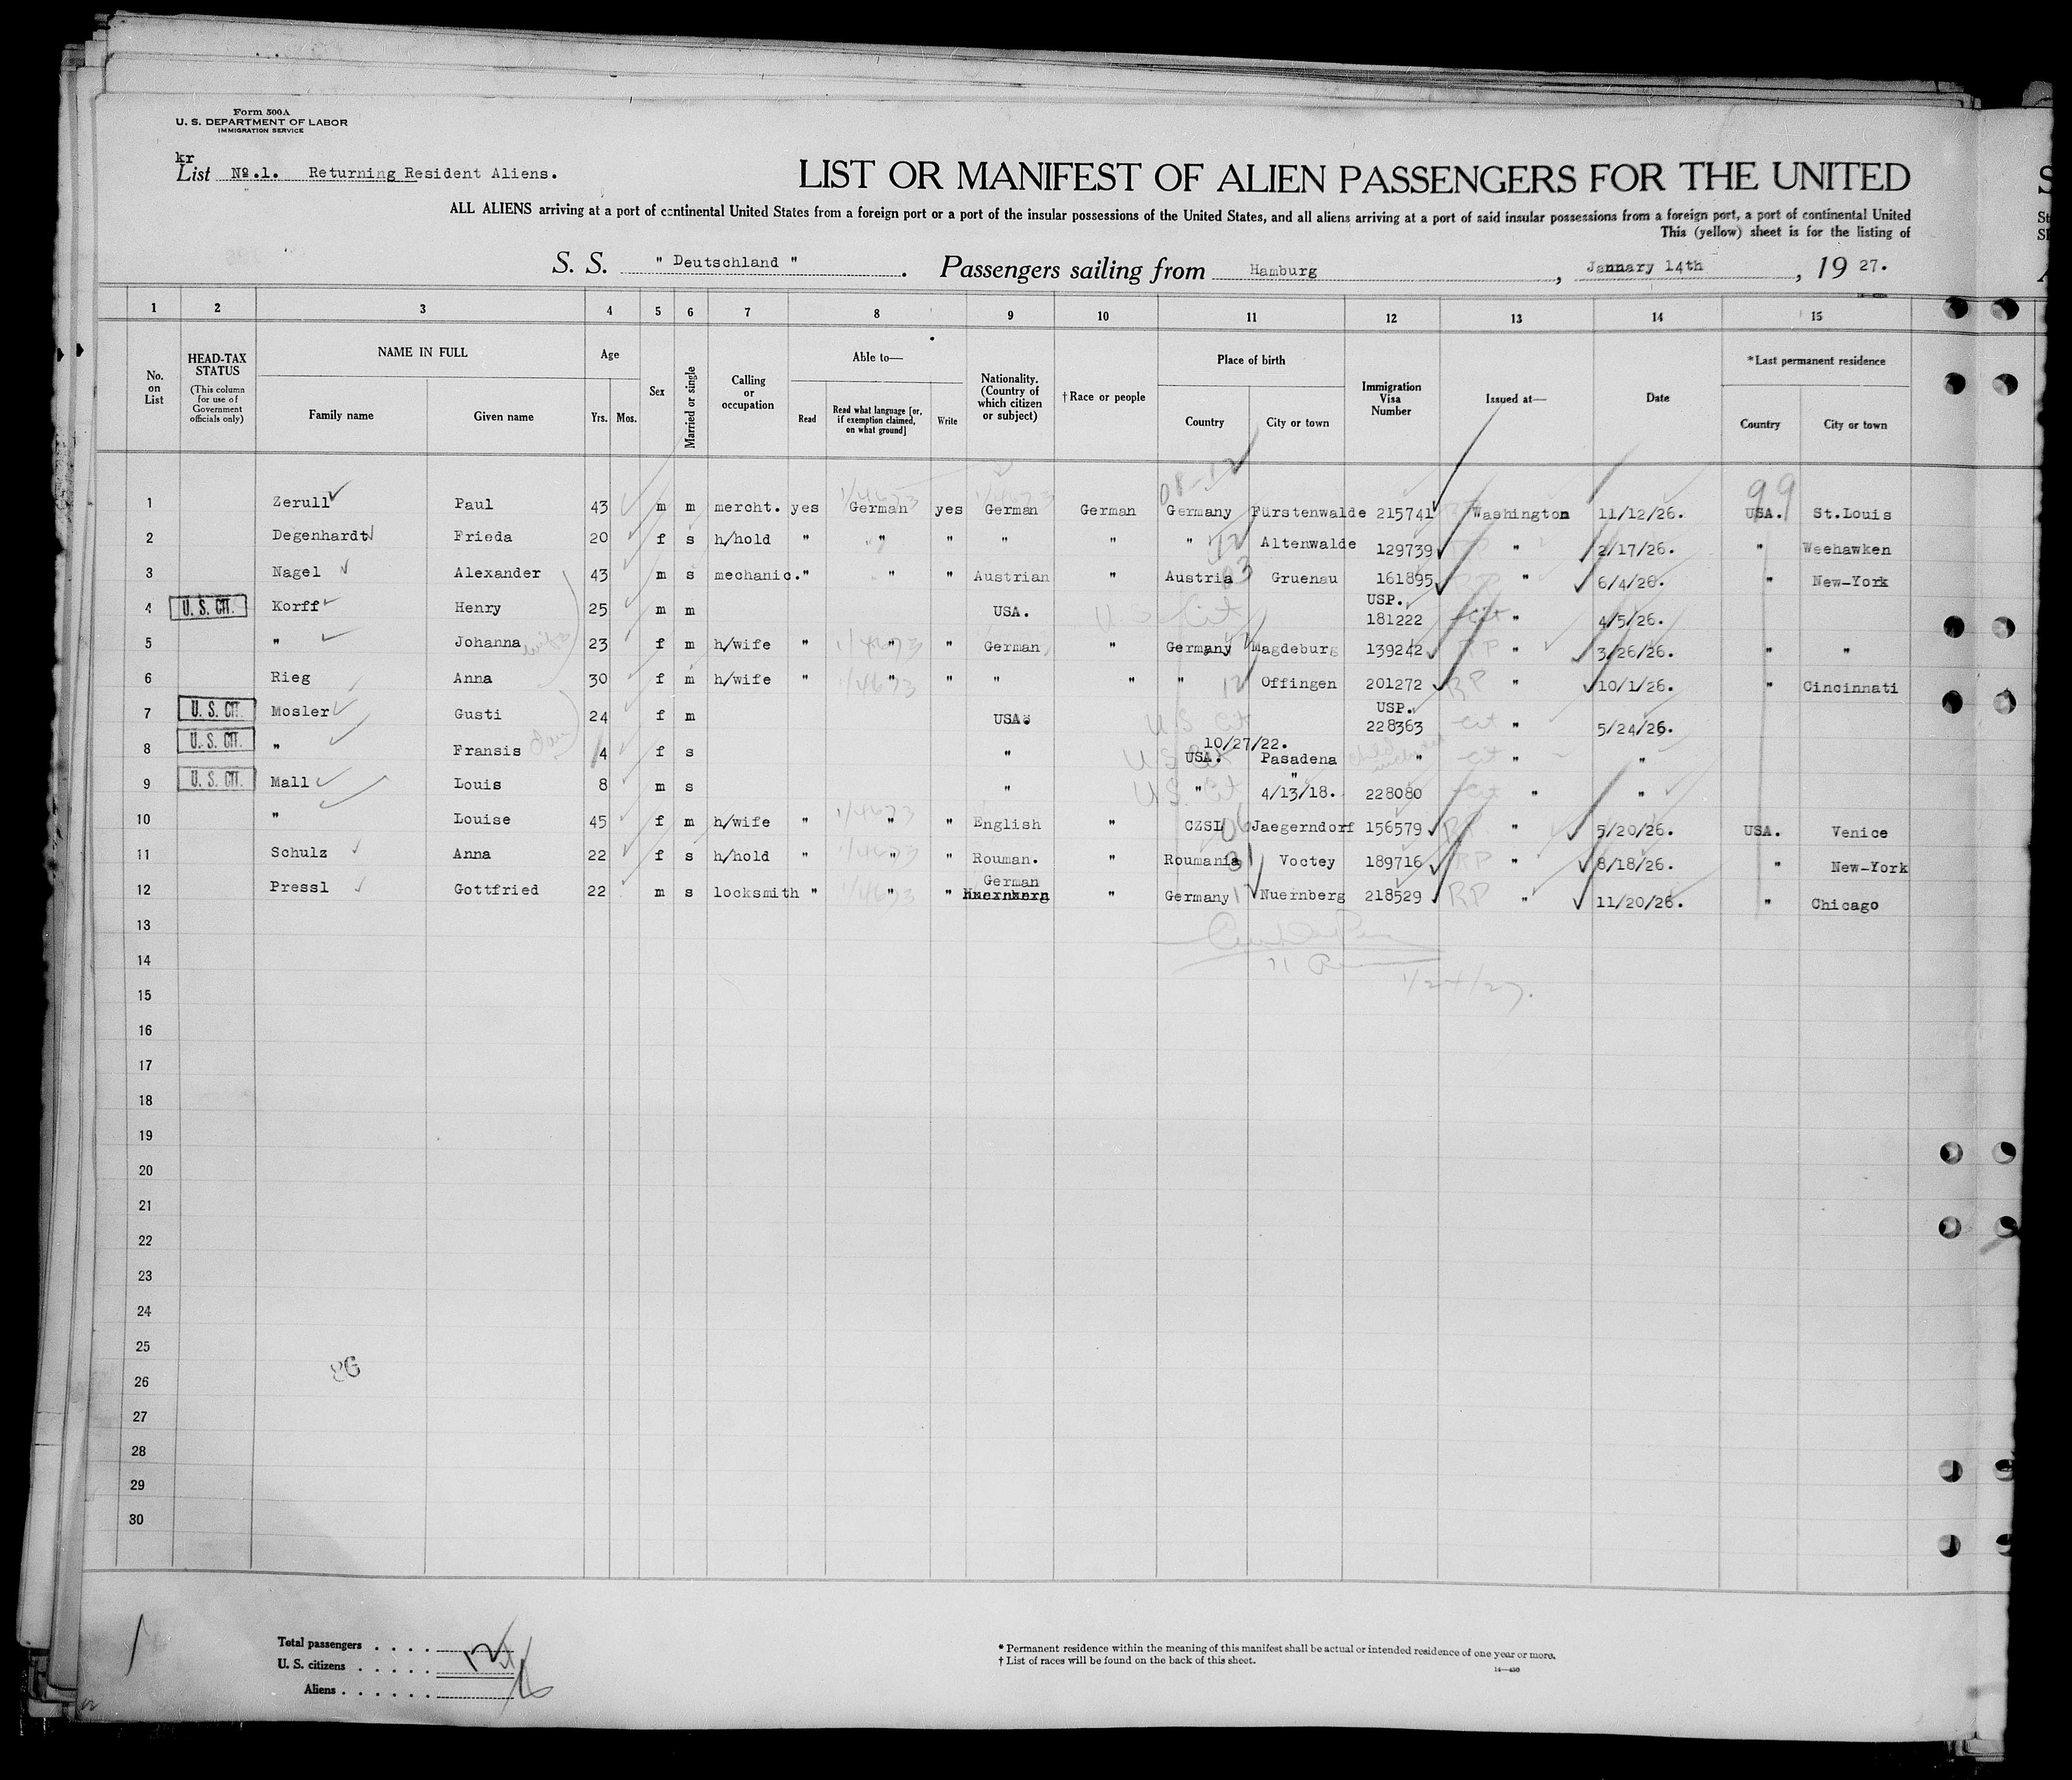 Form 500A
U. S. DEPARTMENT OF LABOR
IMMIGRATION SERVICE
kr
List No.1. Returning Resident Aliens.
LIST OR MANIFEST OF ALIEN PASSENGERS FOR THE UNITED
ALL ALIENS arriving at a port of continental United States from a foreign port or a port of the insular possessions of the United States, and all aliens arriving at a port of said insular possessions from a foreign port, a port of continental United
This (yellow) sheet is for the listing of
S. S. " Deutschland ". Passengers sailing from Hamburg, Jannary 14th, 19 27.
1 2 3 4 5 6 7 8 9 10 11 12 13 14 15
No. on List
HEAD-TAX STATUS (This column for use of Government officials only)
NAME IN FULL
Family name Given name
Age
Yrs. Mos.
Sex
Married or single
Calling or occupation
Able to—
Read
Read what language [or, if exemption claimed, on what ground]
Write
Nationality. (Country of which citizen or subject)
† Race or people
Place of birth
Country City or town
Immigration Visa Number
Issued at—
Date
* Last permanent residence
Country City or town
99
1 Zerull Paul 43 m m mercht. yes German yes German German Germany Fürstenwalde 215741 Washington 11/12/26. USA. St.Louis
2 Degenhardt Frieda 20 f s h/hold " " " " " " 12 Altenwalde 129739 " 2/17/26. " Weehawken
3 Nagel Alexander 43 m s mechanic. " " " Austrian " Austria 03 Gruenau 161895 " 6/4/26. " New-York
4 U. S. CIT. Korff Henry 25 m m USA. U S Cit USP. 181222 Cit " 4/5/26.
5 " Johanna wife 23 f m h/wife " 1/4673 " " German " Germany Magdeburg 139242 RP " 3/26/26. " "
6 Rieg Anna 30 f m h/wife " 1/4673 " " " " " 12 Offingen 201272 RP " 10/1/26. " Cincinnati
7 U. S. CIT. Mosler Gusti 24 f m USA. U.S. Cit USP. 228363 Cit " 5/24/26.
8 U. S. CIT. " Fransis 4 f s " U S Cit 10/27/22. USA. Pasadena " Cit " "
9 U. S. CIT. Mall Louis 8 m s " U.S. Cit " " 4/13/18. 228080 Cit " "
10 " Louise 45 f m h/wife " 1/4673 " " English " CZSL 06 Jaegerndorf 156579 RP " 5/20/26. USA. Venice
11 Schulz Anna 22 f s h/hold " 1/4673 " " Rouman. " Roumania 31 Voctey 189716 RP " 8/18/26. " New-York
12 Pressl Gottfried 22 m s locksmith " 1/4673 " " German " Germany 12 Nuernberg 218529 RP " 11/20/26. " Chicago
13
14
1/24/27.
15
16
17
18
19
20
21
22
23
24
25
26
27
28
29
30
Total passengers . . . . 12
U. S. citizens . . . . .
Aliens . . . . . .
* Permanent residence within the meaning of this manifest shall be actual or intended residence of one year or more.
† List of races will be found on the back of this sheet.